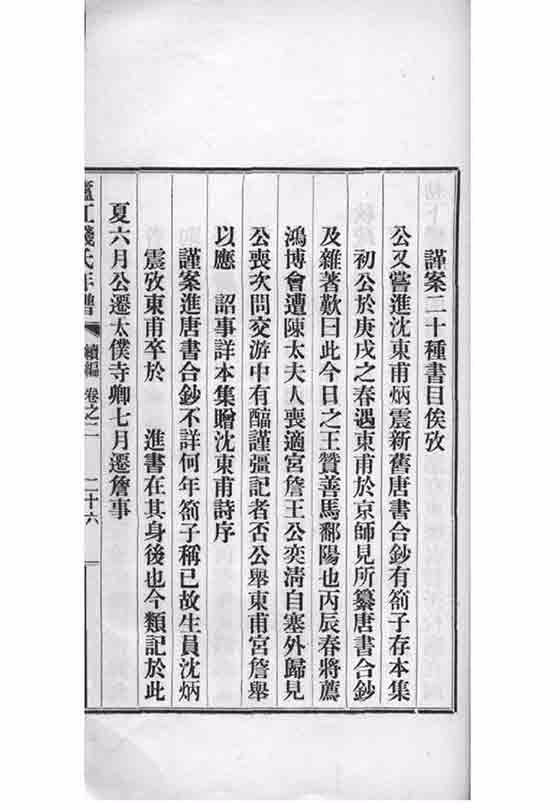 謹案二十種書目俟攷
公又嘗進沈東甫炳震新舊唐書合鈔有箚子存本集
初公於庚戌之春遇東甫於京師見所纂唐書合鈔
及雜著歎曰此今日之王贊善馬鄱陽也丙辰春將薦
鴻博會遭陳太夫人喪適宮詹王公奕清自塞外歸見
公喪次問交游中有醞謹彊記者否公舉東甫宮詹舉
以應 詔事詳本集贈沈東甫詩序
謹案進唐書合鈔不詳何年箚子稱已故生員沈炳
震攷東甫卒於 進書在其身後也今類記於此
夏六月公遷太僕寺卿七月遷詹事
廬江錢氏年譜 續編 卷之二 二十六